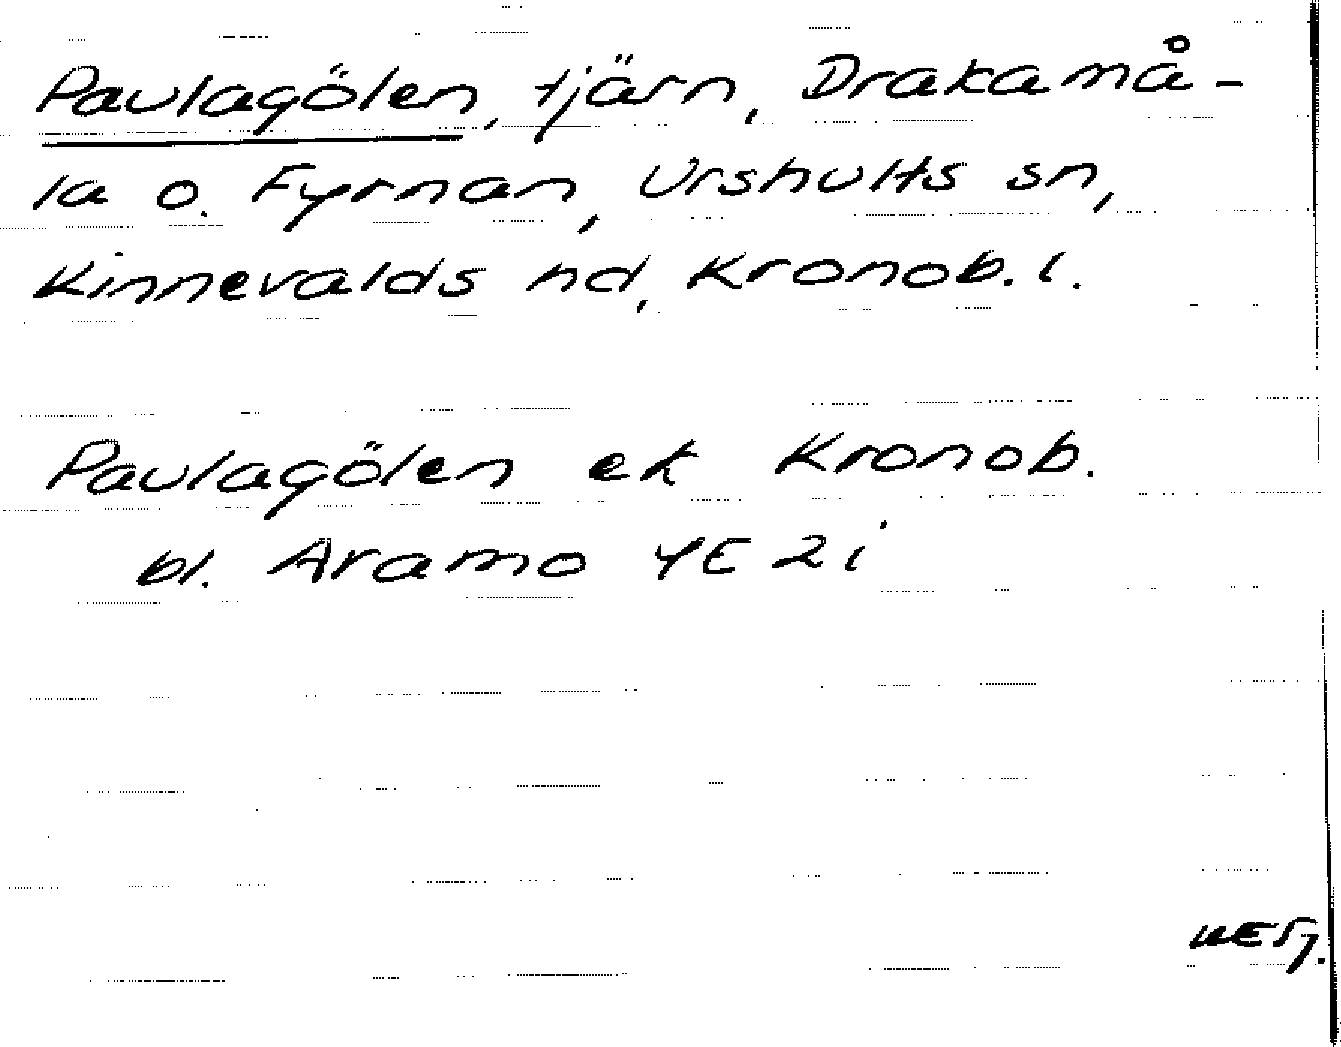 Paulagölen, tjärn, Drakamå-
la o. Fyrnan, Urshults sn,
Kinnevalds hd, Kronob. l.
Paulagölen ek Kronob.
bl. Aramo 4E 2i